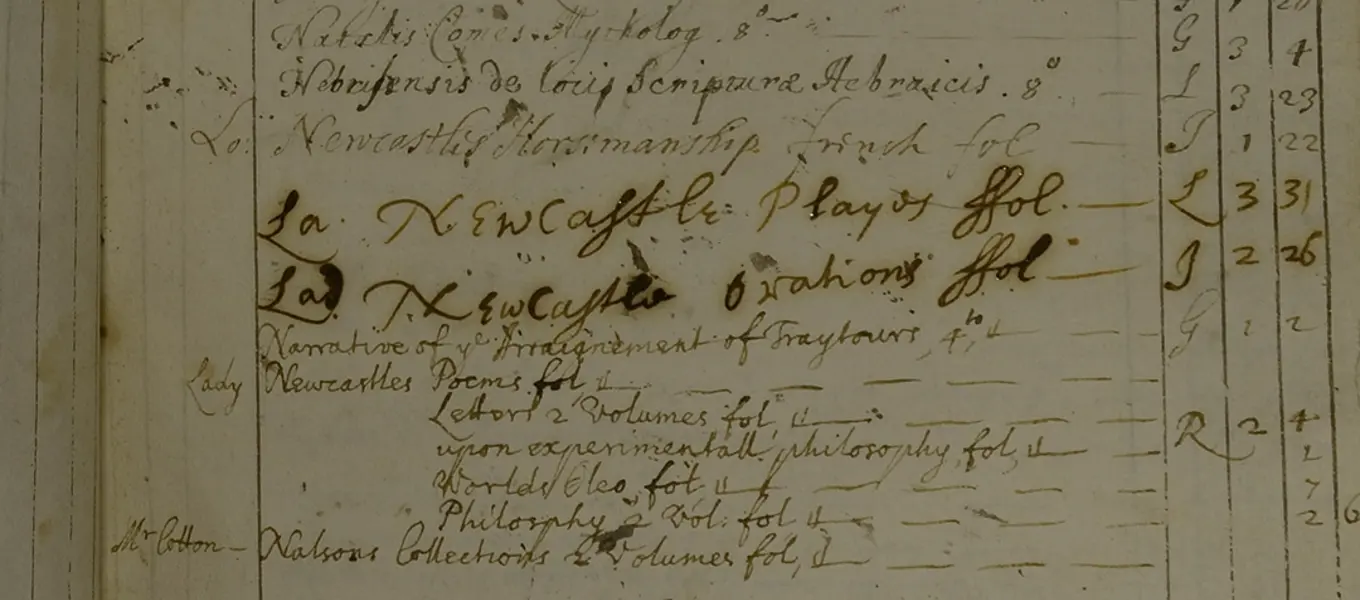 Natalis Comes Mytholog. 8° G 3 4
Nebrissensis de locis Scripturæ Hebraicis. 8° L 3 23
Lo: Newcastles Horsemanship french fol J 1 22
La. Newcastle Playes ffol. L 3 31
Lad Newcastle Orations ffol J 2 26
Narrative of yᵉ Arraignement of Traytours, 4to G 1 2
Lady Newcastles Poems fol,
Letters 2 Volumes fol, R 2 4
upon experimentall philosophy, fol, 1
Worlds Oleo, fol 7
Philosphy 2 Vol: fol 2 6
Mr Cotton – Nalsons Collections 2 Volumes fol,